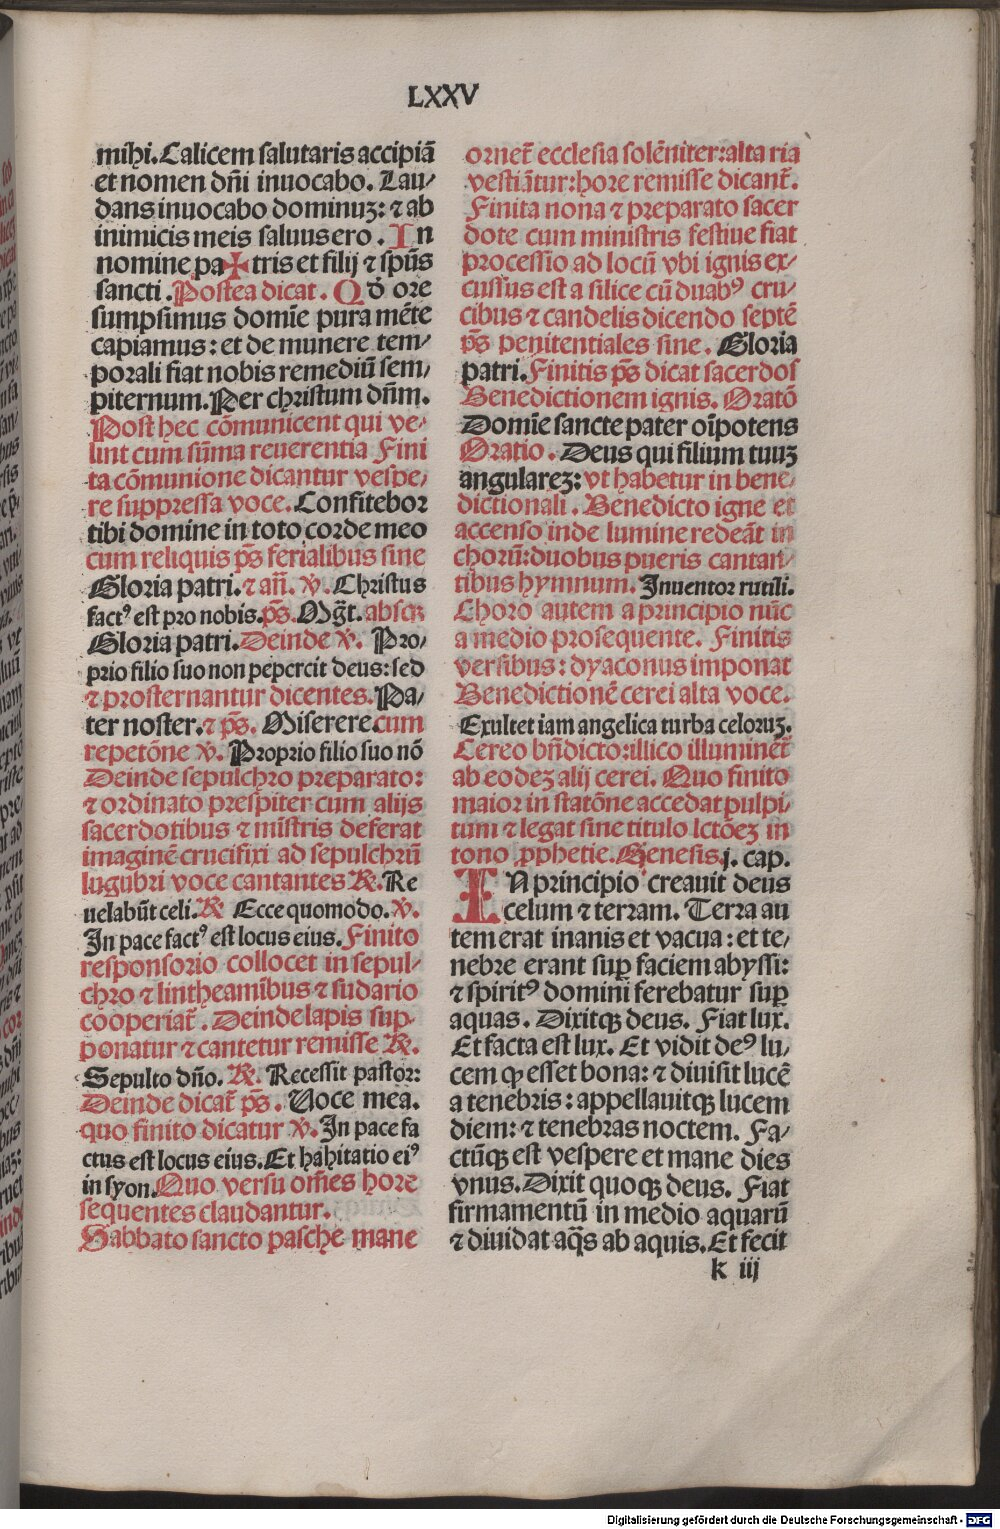 LXXV
mihi. Calicem salutaris accipiā
et nomen dn̄i inuocabo. Lau⸗
dans inuocabo dominuꝫ: ⁊ ab
inimicis meis saluus ero. In
nomine pa ✠ tris et filij ⁊ spūs
sancti. Postea dicat. Qḋ ore
sumpsimus domīe pura mēte
capiamus: et de munere tem⸗
porali fiat nobis remediū sem⸗
piternum. Per christum dn̄m.
Post hec cōmunicent qui ve⸗
lint cum sūma reuerentia Fini
ta cōmunione dicantur vespe⸗
re suppressa voce. Confitebor
tibi domine in toto corde meo
cum reliquis pō̄s ferialibus sine
Gloria patri. ⁊ an̄. ℣. Christus
factꝰ est pro nobis. pō̄s. Mḡt. absqꝫ
Gloria patri. Deinde ℣. Pro⸗
prio filio suo non pepercit deus: sed
⁊ prosternantur dicentes. Pa⸗
ter noster. ⁊ pō̄s. Miserere. cum
repetōne ℣. Proprio filio suo nō
Deinde sepulchro preparato:
⁊ ordinato presp̄iter cum alijs
sacerdotibus ⁊ mīstris deferat
imaginē crucifixi ad sepulchrū
lugubri voce cantantes ℟. Re
uelabūt celi. ℟ Ecce quomodo. ℣.
In pace factꝰ est locus eius. Finito
responsorio collocet in sepul⸗
chro ⁊ lintheamībus ⁊ sudario
cooperiat̄. Deinde lapis sup̲
ponatur ⁊ cantetur remisse ℟.
Sepulto dn̄o. ℟. Recessit pastor:
Deinde dicat̄ pō̄s. Voce mea.
quo finito dicatur ℣. In pace fa
ctus est locus eius. Et habitatio eiꝰ
in syon. Quo versu om̄es hore
sequentes claudantur.
Sabbato sancto pasche mane
ornet̄ ecclesia solēniter: altaria
vestiāt̄ur: hore remisse dicant̄.
Finita nona ⁊ preparato sacer
dote cum ministris festiue fiat
processio ad locū vbi ignis ex⸗
cussus est a silice cū duabꝰ cru⸗
cibus ⁊ candelis dicendo septē
pō̄s penitentiales sine. Gloria
patri. Finitis pō̄s dicat sacerdos
Benedictionem ignis. Oratō
Domīe sancte pater oīpotens
Oratio. Deus qui filium tuuꝫ
angulareꝫ: vt habetur in bene⸗
dictionali. Benedicto igne et
accenso inde lumine redeāt in
chorū: duobus pueris cantan⸗
tibus hymnum. Inuentor rutili.
Choro autem a principio nūc
a medio prosequente. Finitis
versibus: dyaconus imponat
Benedictionē cerei alta voce.
Exultet iam angelica turba celoruꝫ.
Cereo bn̄dicto: illico illuminet̄
ab eodeꝫ alij cerei. Quo finito
maior in statōne accedat pulpi⸗
tum ⁊ legat sine titulo lctōeꝫ in
tono ꝓphetie. Genesis. j. cap.
IN principio creauit deus
celum ⁊ terram. Terra au
tem erat inanis et vacua: et te⸗
nebre erant sup̲ faciem abyssi:
⁊ spiritꝰ domini ferebatur sup̲
aquas. Dixitqꝫ deus. Fiat lux.
Et facta est lux. Et vidit deꝰ lu⸗
cem ꝙ esset bona: ⁊ diuisit lucē
a tenebris: appellauitqꝫ lucem
diem: ⁊ tenebras noctem. Fa⸗
ctūqꝫ est vespere et mane dies
vnus. Dixit quoqꝫ deus. Fiat
firmamentū in medio aquarū
⁊ diuidat aq̄s ab aquis. Et fecit
k iij
Digitalisierung gefördert durch die Deutsche Forschungsgemeinschaft - DFG